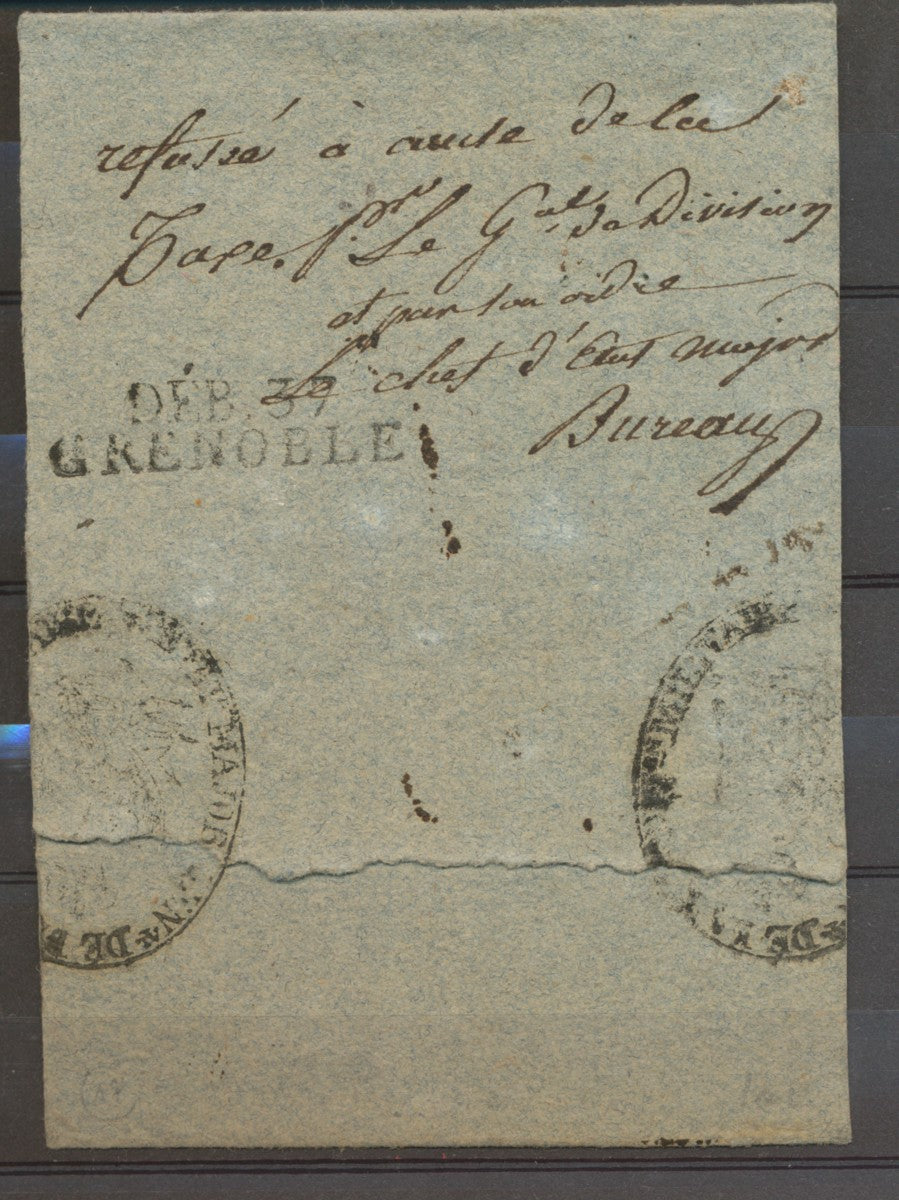 refusée à cause de la
Taxe. pr. Le Gal. de Division
et par son ordre
Le chef d'Etat major
Bureau
DÉB. 37
GRENOBLE
ET MAJOR
DE
MILITAIRE
DE LA